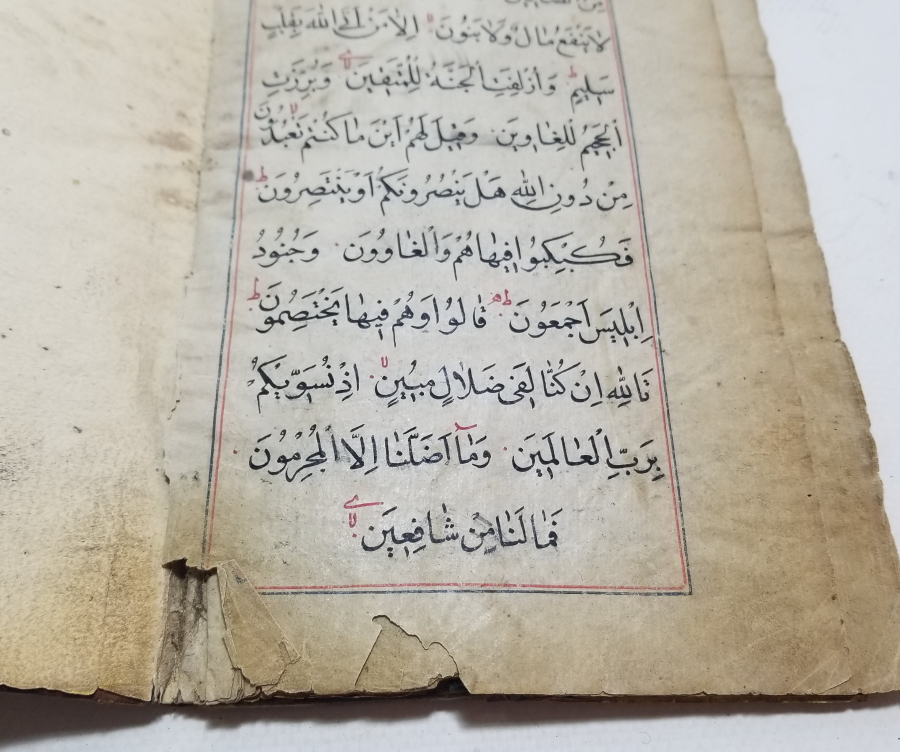 لا ينفع مال ولا بنون الا من اتى الله بقلب
سليم وازلفت الجنة للمتقين وبرزت
الجحيم للغاوين وقيل لهم اين ما كنتم تعبدون
من دون الله هل ينصرونكم او ينتصرون
فكبكبوا فيها هم والغاوون وجنود
ابليس اجمعون قالوا وهم فيها يختصمون
تالله ان كنا لفى ضلال مبين اذ نسويكم
برب العالمين وما اضلنا الا المجرمون
فما لنا من شافعين